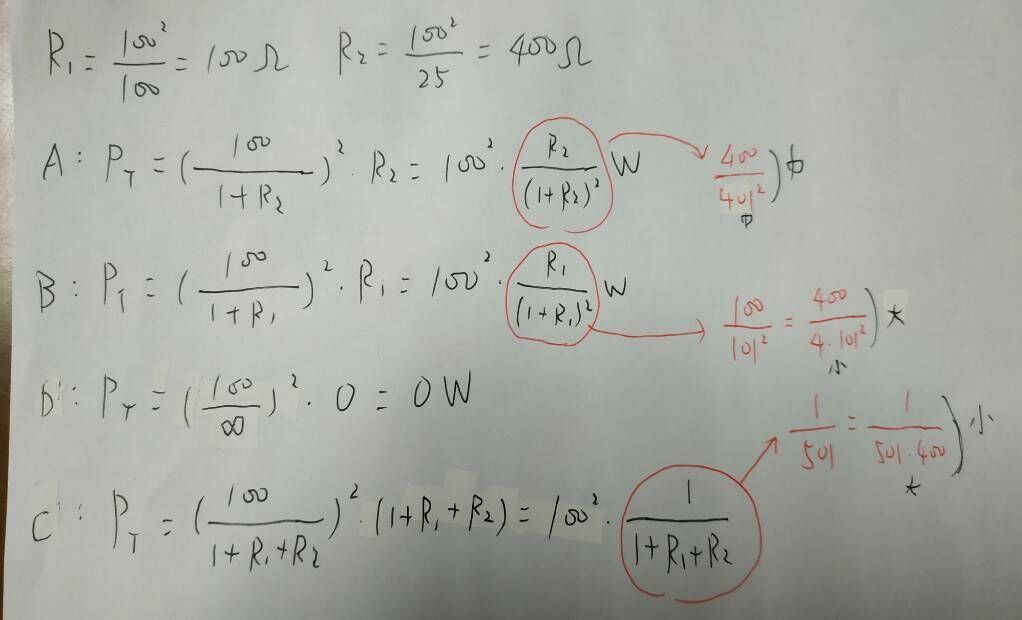 R₁ = 100²/100 = 100Ω R₂ = 100²/25 = 400Ω
A: P_T = (100/(1+R₂))²·R₂ = 100²·R₂/(1+R₂)² W 400/401² )中
中
B: P_T = (100/(1+R₁))²·R₁ = 100²·R₁/(1+R₁)² W 100/101² = 400/(4·101²) )大
小
D: P_T = (100/∞)²·0 = 0W
1/501 = 1/(501·400) )小
大
C: P_T = (100/(1+R₁+R₂))²·(1+R₁+R₂) = 100²·1/(1+R₁+R₂)